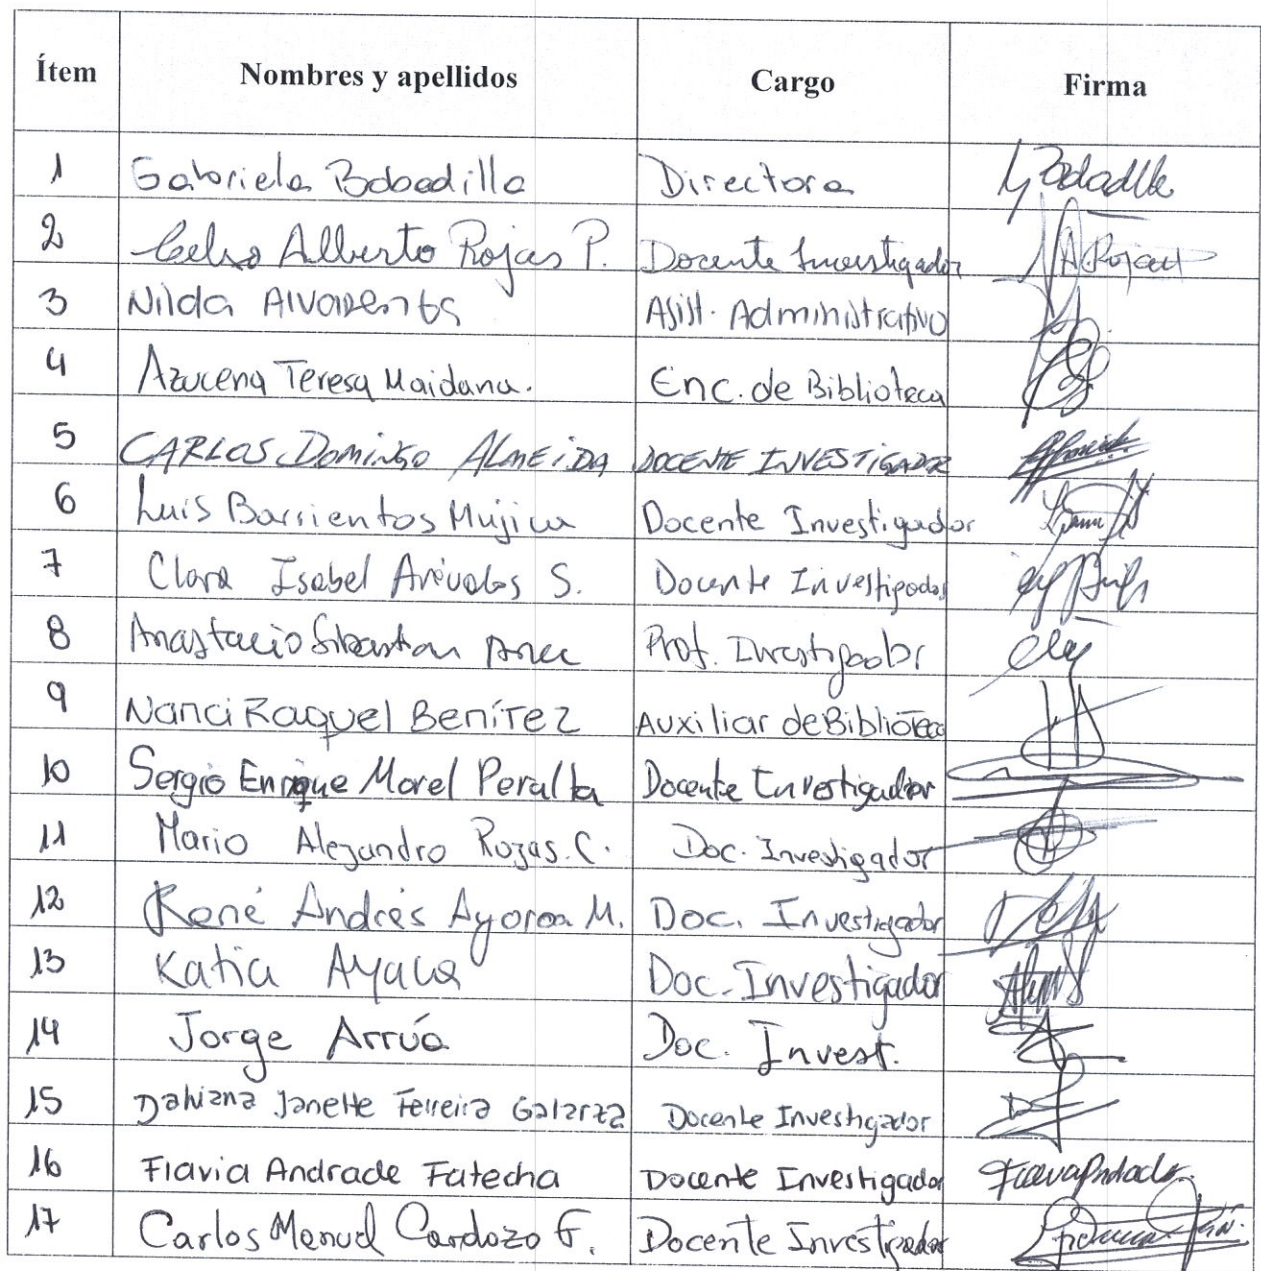 Ítem Nombres y apellidos Cargo Firma
1 Gabriela Bobadilla Directora G. Bobadilla
2 Celso Alberto Rojas P. Docente Investigador
3 Nilda Alvarenga Asist. Administrativo
4 Azucena Teresa Maidana. Enc. de Biblioteca
5 CARLOS DOMINGO ALMEIDA DOCENTE INVESTIGADOR
6 Luis Barrientos Mujica Docente Investigador
7 Clara Isabel Arévalos S. Docente Investigador
8 Anastacio Sebastian Arce Prof. Investigador
9 Nanci Raquel Benítez Auxiliar de Biblioteca
10 Sergio Enrique Morel Peralta Docente Investigador
11 Mario Alejandro Rojas C. Doc. Investigador
12 René Andrés Ayoroa M. Doc. Investigador
13 Katia Ayala Doc. Investigador
14 Jorge Arrúa Doc. Invest.
15 Dahiana Janette Ferreira Galarza Docente Investigador
16 Flavia Andrade Fatecha Docente Investigador
17 Carlos Manuel Cardozo F. Docente Investigador